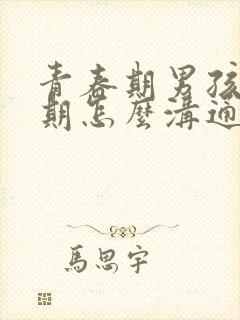 青春期男孩
期怎麼溝通
馬思宇